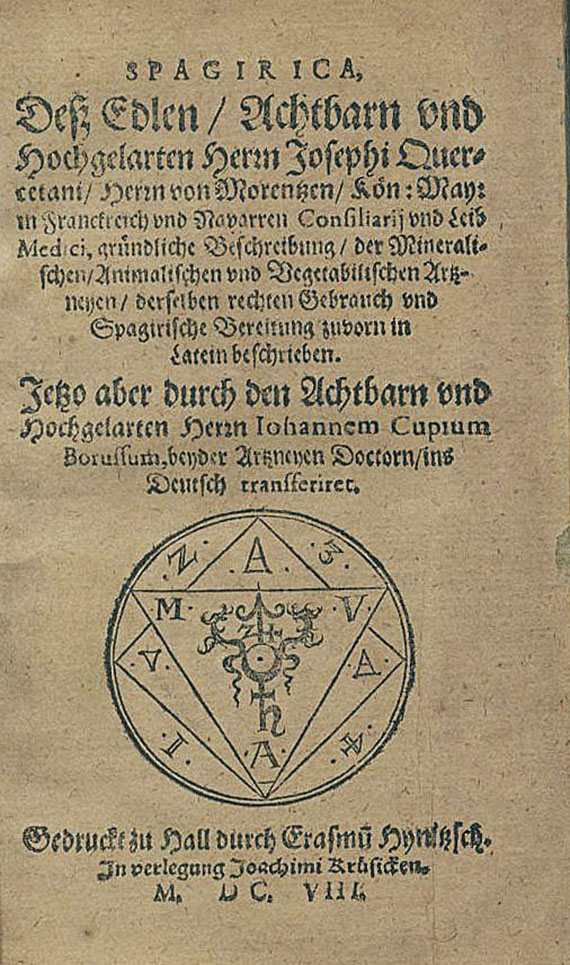 SPAGIRICA,
Deß Edlen / Achtbarn vnd
Hochgelarten Herrn Josephi Quer⸗
cetani/ Herrn von Morentzen/ Kön: May:
in Franckreich vnd Navarren Consiliarij vnd Leib
Medici, gründliche Beschreibung/ der Minerali⸗
schen/Animalischen vnd Vegetabilischen Artz⸗
neyen/ derselben rechten Gebrauch vnd
Spagirische Bereitung zuvorn in
Latein beschrieben.
Jetzo aber durch den Achtbarn vnd
Hochgelarten Herrn Iohannem Cupium
Borussum, beyder Artzneyen Doctorn/ins
Deutsch transferiret.
Z . A . 3
M V
V A
I . A . 4
Gedruckt zu Hall durch Erasmū Hynitzsch.
In verlegung Joachimi Krüsicken.
M. DC. VIII.